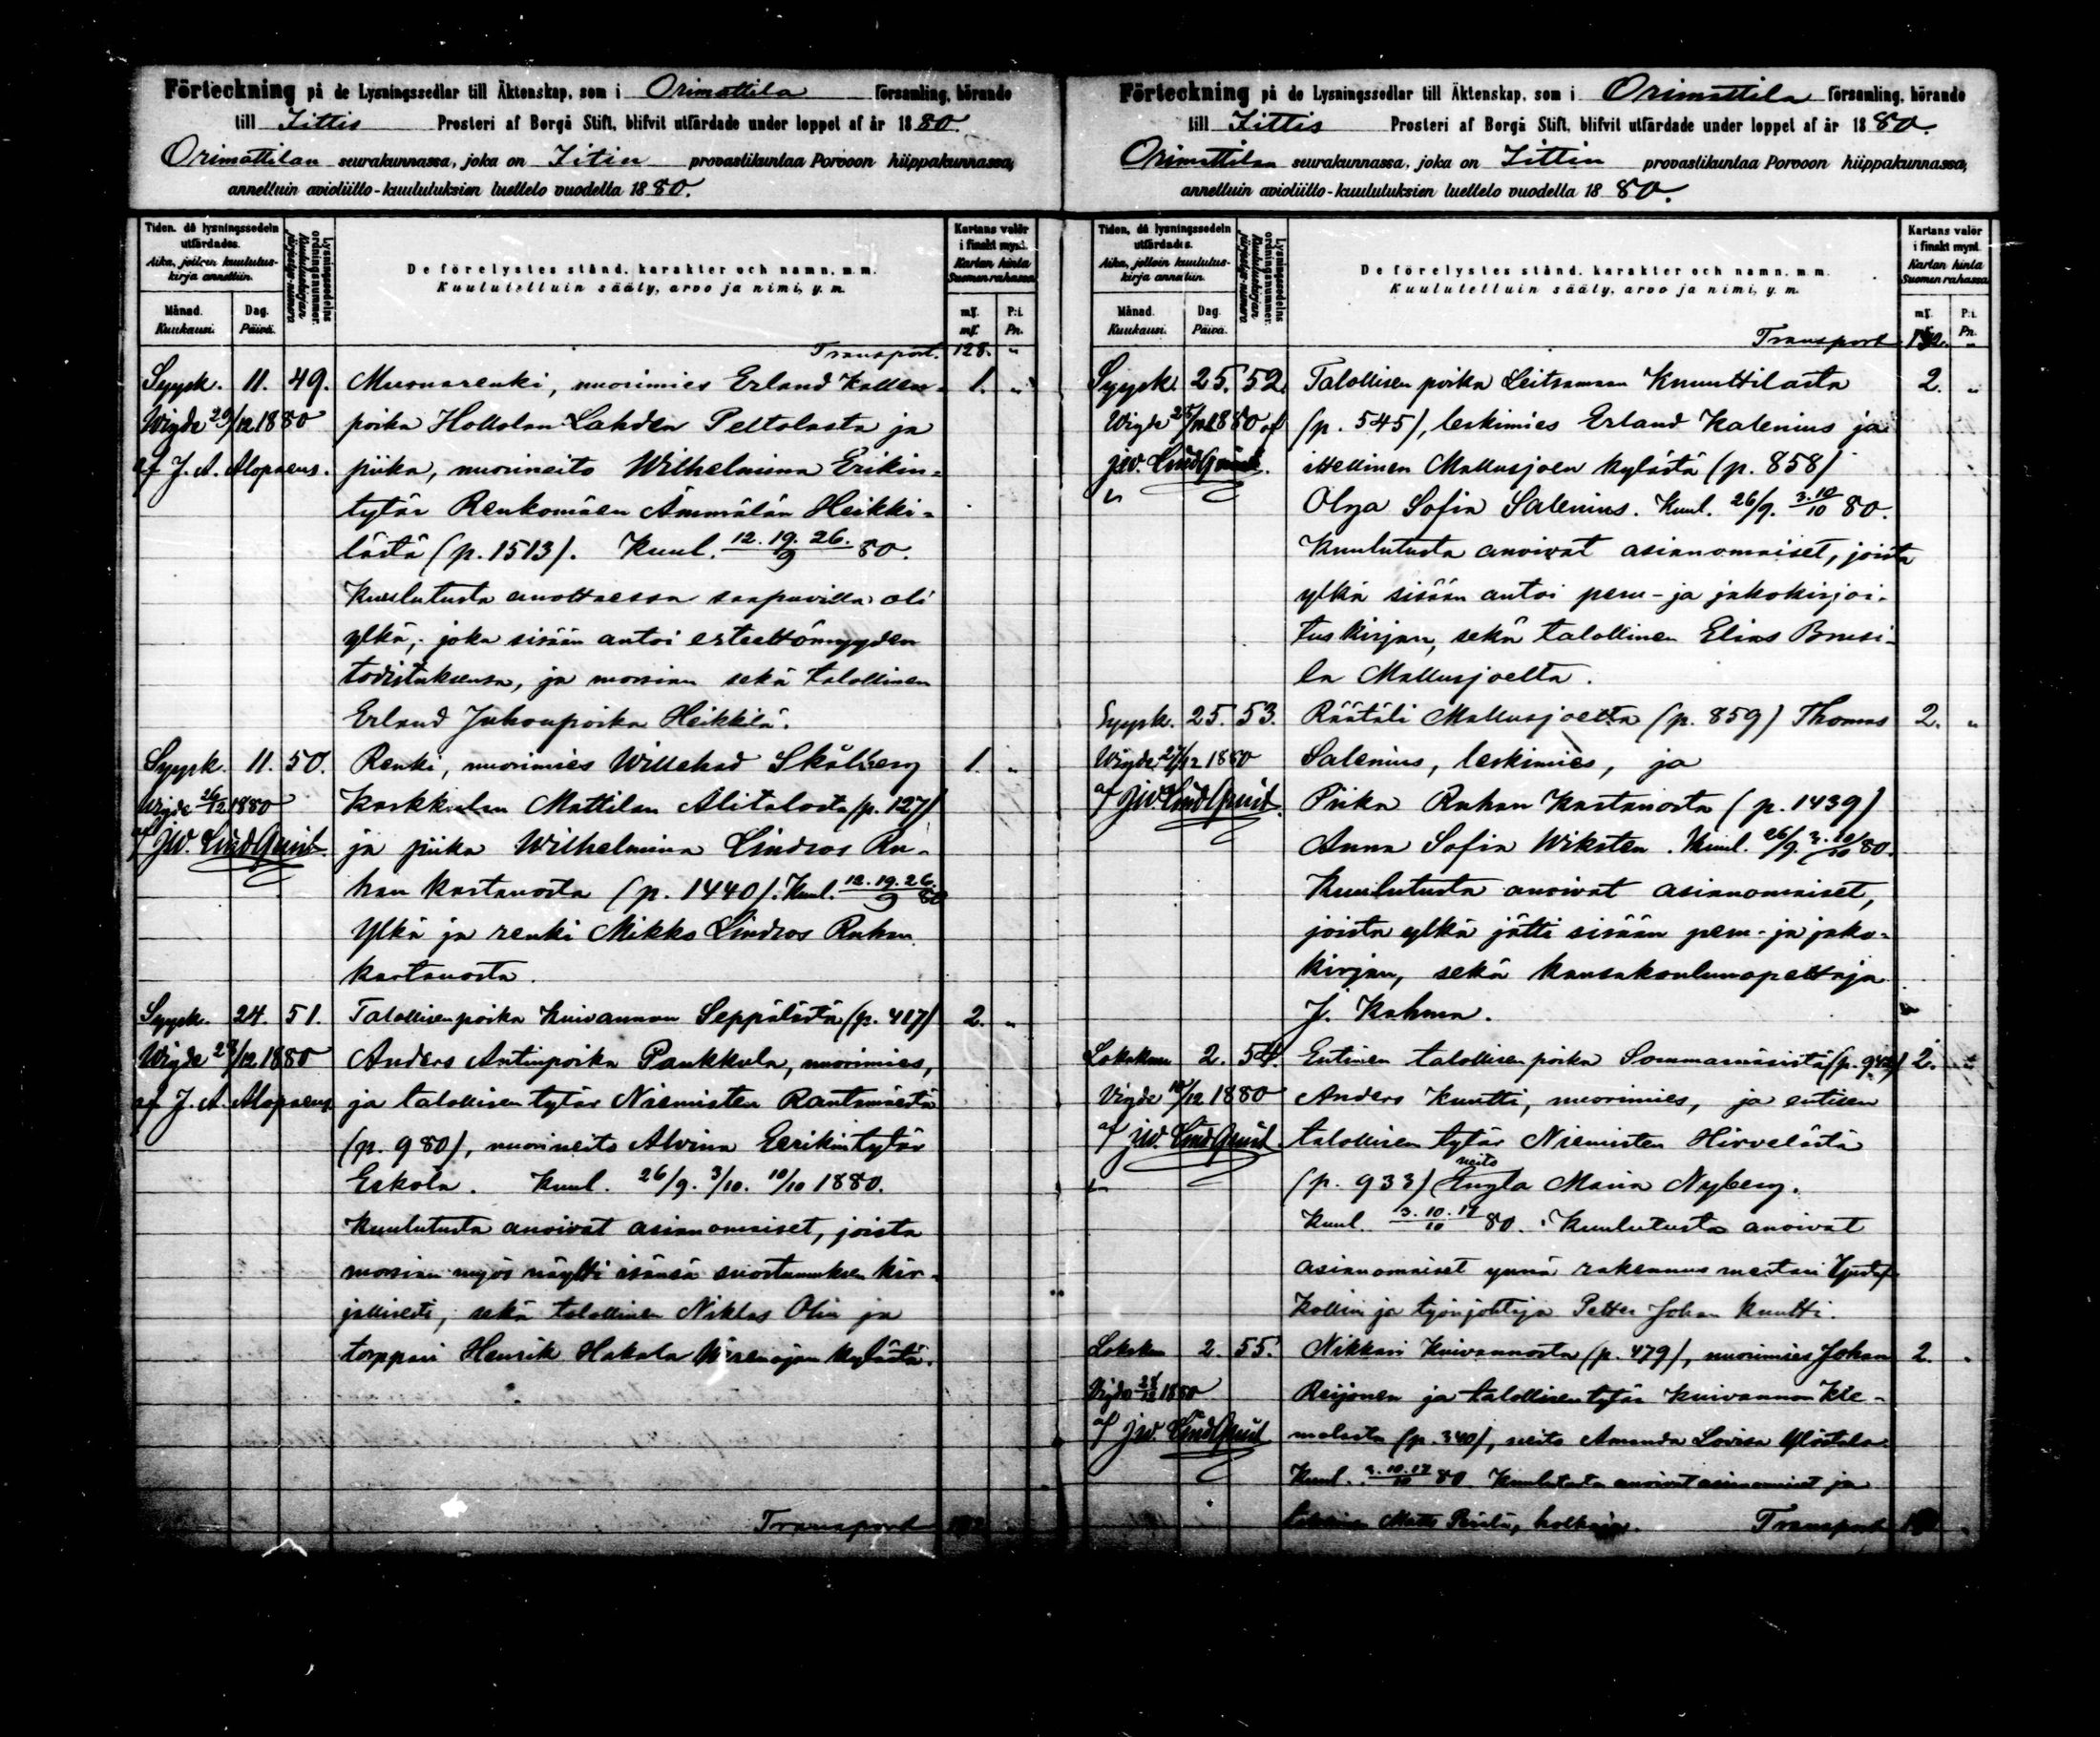 Förteckning på de Lysningssedlar till Äktenskap, som i Orimattila församling, hörande
till Iittis Prosteri af Borgå Stift, blifvit utfärdade under loppet af år 1880.
Orimattilan seurakunnassa, joka on Iitin provastikuntaa Porvoon hiippakunnassa,
annettuin avioliitto-kuulutuksien luettelo vuodella 1880.
Tiden, då lysningssedeln utfärdades.
Aika, jolloin kuulutuskirja annettiin.
Månad. Kuukausi.
Dag. Päivä.
Lysningssedelns ordningsnummer.
Kuulutuskirjan järjestys-numero
De förelystes stånd, karakter och namn, m. m.
Kuulutelluin sääty, arvo ja nimi, y. m.
Kartans valör i finskt mynt.
Kartan hinta Suomen rahassa
mƒ. P:i.
mƒ. Pn.
Transport. 128. "
Syysk. 11. 49. Muonarenki, nuorimies Erland Kallen- 1. "
Wigde 29/12 1880 poika Hollolan Lahden Peltolasta ja
af J. A. Alopaeus. piika, nuorineito Wilhelmina Erikin-
tytär Renkomäen Ämmälän Heikki-
lästä (p. 1513). Kuul. 12. 19. 26./9 80.
Kuulutusta anottaessa saapuvilla oli
ylkä, joka sisään antoi esteettömyyden
todistuksensa, ja morsian sekä talollinen
Erland Juhonpoika Heikkilä.
Syysk. 11. 50. Renki, nuorimies Willehad Skålberg 1. "
Wigde 26/12 1880 Karkkulan Mattilan Alitalosta (p. 127)
af J.W. LindQvist. ja piika Wilhelmina Lindros Ru-
han Kartanosta (p. 1440). Kuul. 12. 19. 26./9 80
Ylkä ja renki Mikko Lindros Ruhan
kartanosta.
Syysk. 24. 51. Talollisenpoika Kuivannon Seppälästä (p. 417) 2. "
Wigde 28/12 1880 Anders Antinpoika Paukkula, nuorimies,
af J. A. Alopaeus. ja talollisen tytär Niemisten Rantamäestä
(p. 980), nuorineito Alvina Eerikintytär
Eskola. Kuul. 26/9. 3/10. 10/10 1880.
Kuulutusta anoivat asianomaiset, joista
morsian myös näytti isänsä suostumuksen kir-
jallisesti, sekä talollinen Niklas Olin ja
torppari Henrik Hakala Wirenojan kylästä.
Transport
Förteckning på de Lysningssedlar till Äktenskap, som i Orimattila församling, hörande
till Iittis Prosteri af Borgå Stift, blifvit utfärdade under loppet af år 1880.
Orimattilan seurakunnassa, joka on Iittin provastikuntaa Porvoon hiippakunnassa,
annettuin avioliitto-kuulutuksien luettelo vuodella 1880.
Tiden, då lysningssedeln utfärdades.
Aika, jolloin kuulutuskirja annettiin.
Månad. Kuukausi.
Dag. Päivä.
Lysningssedelns ordningsnummer.
Kuulutuskirjan järjestys-numero
De förelystes stånd, karakter och namn, m. m.
Kuulutelluin sääty, arvo ja nimi, y. m.
Kartans valör i finskt mynt.
Kartan hinta Suomen rahassa
mƒ. P:i.
mƒ. Pn.
Transport 132. "
Syysk. 25. 52. Talollisen poika Leitsamaan Knuuttilasta 2. "
Wigde 1880 af (p. 545), leskimies Erland Kalenius ja
J.W. LindQvist. ittellinen Mallusjoen kylästä (p. 858)
Olga Sofia Salenius. Kuul. 26/9. 3. 10/10 80.
Kuulutusta anoivat asianomaiset, joista
ylkä sisään antoi peru- ja jakokirjoi-
tus kirjan, sekä talollinen Elias Brusi-
la Mallusjoelta.
Syysk. 25. 53. Räätäli Mallusjoelta (p. 859) Thomas 2. "
Wigde 27/12 1880 Salenius, leskimies, ja
af J.W. LindQvist. Piika Ruhan Kartanosta (p. 1439)
Anna Sofia Wiksten. Kuul. 26/9. 3. 10/10 80.
Kuulutusta anoivat asianomaiset,
joista ylkä jätti sisään peru- ja jako-
kirjan, sekä kansakoulunopettaja
J. Kahma.
Lokakuu 2. 54. Entinen talollisen poika Sommarnäsistä 2. "
Vigde 10/12 1880 Anders Knutti, nuorimies, ja entisen
af J.W. LindQvist. talollisen tytär Niemisten Hirvelästä
(p. 933) neito Engla Maria Nyberg.
Kuul. 3. 10. 17/10 80. Kuulutusta anoivat
asianomaiset ynnä rakennus mestari Gustaf
Kollin ja työnjohtaja Petter Johan Knutti.
Lokakuu 2. 55. Nikkari Kuivannosta (p. 479), nuorimies Johan 2. "
Vigde 28/12 1880 Reijonen ja talollisen tytär Kuivannon Kle-
af J.W. LindQvist molasta (p. 340), neito Amanda Lovisa Ylöstalo.
Kuul. 3. 10. 17/10 80. Kuulutusta anoivat asianomaiset ja
Matts
Transport